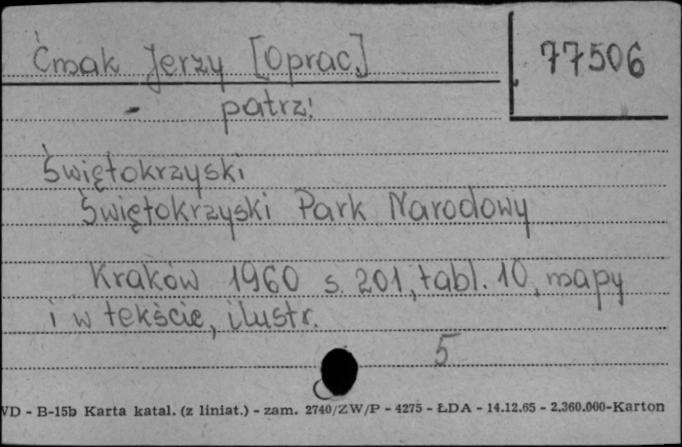 Ćmak Jerzy [Oprac.]
77506
- patrz:
Świętokrzyski
Świętokrzyski Park Narodowy
Kraków 1960 s. 201, tabl. 10, mapy
i w tekście, ilustr.
5
VD - B-15b Karta katal. (z liniat.) - zam. 2740/ZW/P - 4275 - ŁDA - 14.12.65 - 2.360.000-Karton